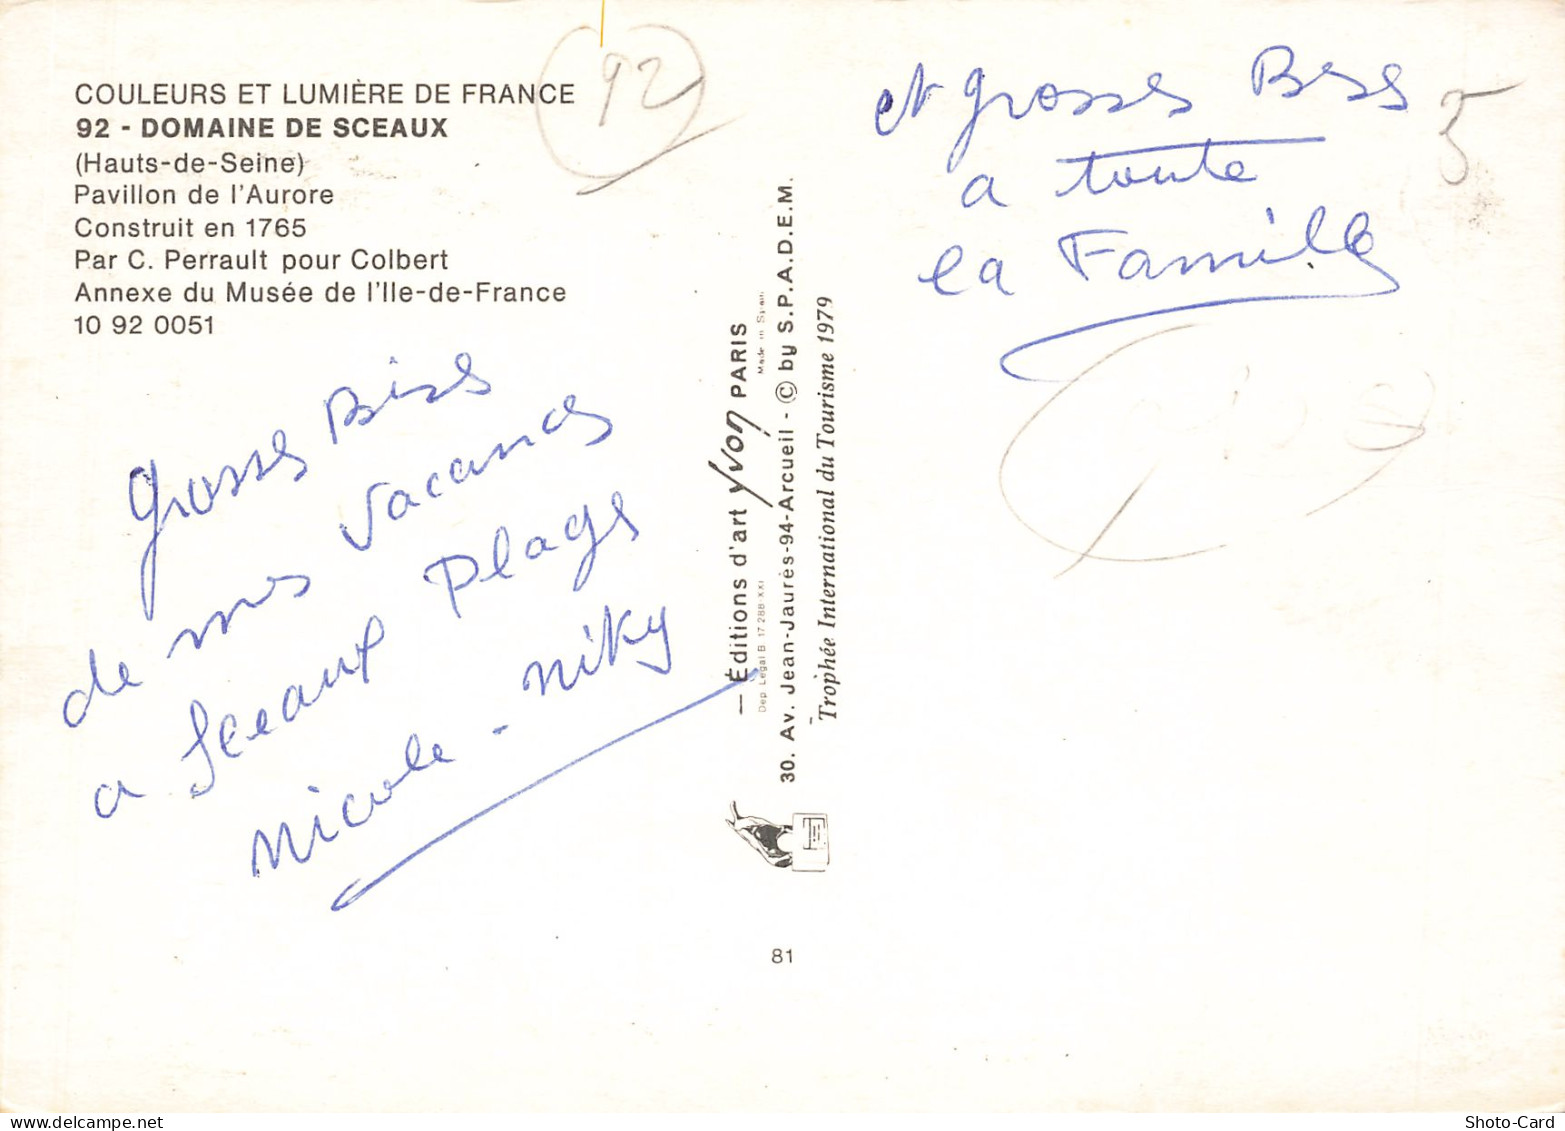 COULEURS ET LUMIÈRE DE FRANCE
92 - DOMAINE DE SCEAUX
(Hauts-de-Seine)
Pavillon de l'Aurore
Construit en 1765
Par C. Perrault pour Colbert
Annexe du Musée de l'Ile-de-France
10 92 0051
92
Grosses Bises
de mes vacances
a Sceaux Plage
Nicole - Niky
— Éditions d'art Yvon PARIS
Dep Légal B 17 288-XXI
Made in Spain
30. Av. Jean-Jaurès-94-Arcueil - © by S.P.A.D.E.M.
Trophée International du Tourisme 1979
81
et grosses Bises
a toute
la Famille
5
Shoto-Card